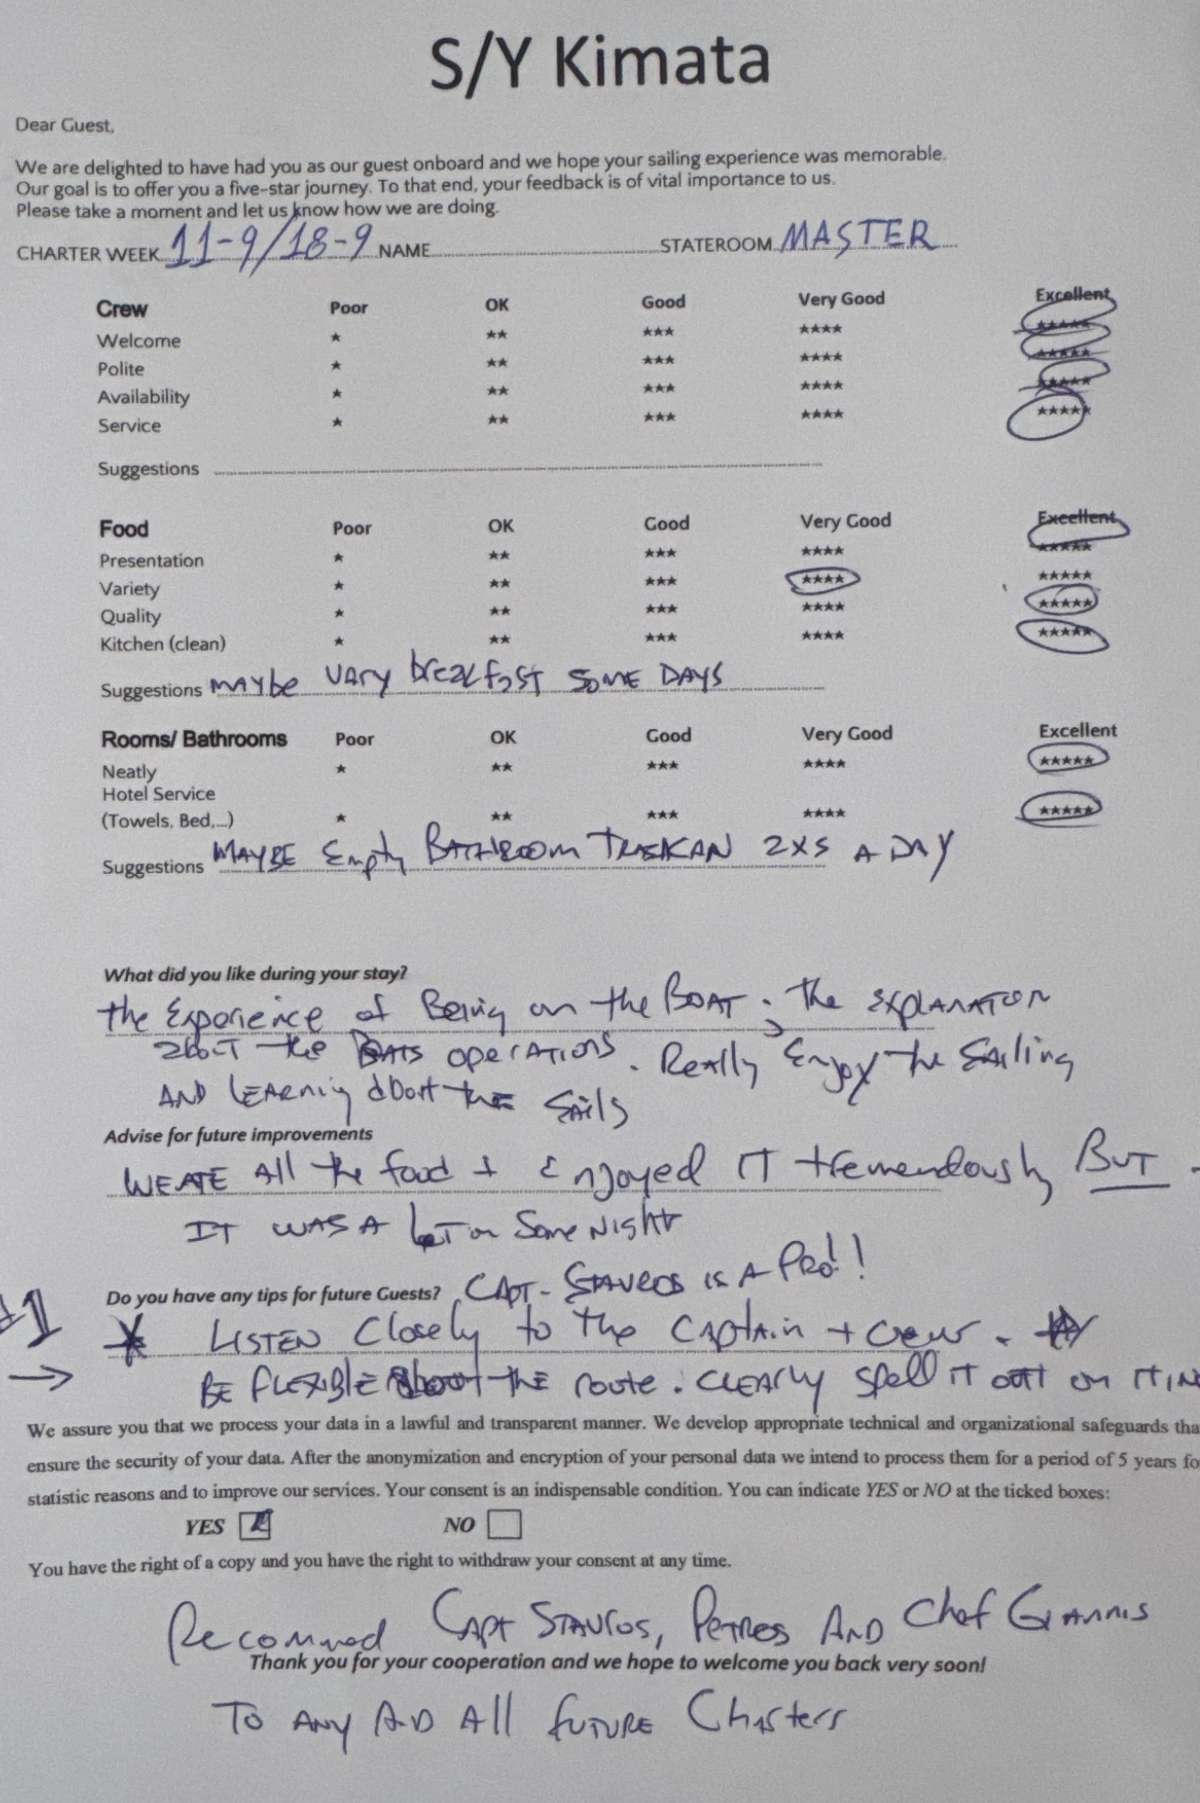 S/Y Kimata
Dear Guest,
We are delighted to have had you as our guest onboard and we hope your sailing experience was memorable.
Our goal is to offer you a five-star journey. To that end, your feedback is of vital importance to us.
Please take a moment and let us know how we are doing.
CHARTER WEEK 11-9/18-9 NAME STATEROOM MASTER
Crew Poor OK Good Very Good Excellent
Welcome ★ ★★ ★★★ ★★★★ ★★★★★
Polite ★ ★★ ★★★ ★★★★ ★★★★★
Availability ★ ★★ ★★★ ★★★★ ★★★★★
Service ★ ★★ ★★★ ★★★★ ★★★★★
Suggestions
Food Poor OK Good Very Good Excellent
Presentation ★ ★★ ★★★ ★★★★ ★★★★★
Variety ★ ★★ ★★★ ★★★★ ★★★★★
Quality ★ ★★ ★★★ ★★★★ ★★★★★
Kitchen (clean) ★ ★★ ★★★ ★★★★ ★★★★★
Suggestions MAYbe VARY breakfast SOME DAYS
Rooms/ Bathrooms Poor OK Good Very Good Excellent
Neatly ★ ★★ ★★★ ★★★★ ★★★★★
Hotel Service
(Towels, Bed,...) ★ ★★ ★★★ ★★★★ ★★★★★
Suggestions MAYBE Empty BATHROOM TRASHCAN 2XS A DAY
What did you like during your stay?
the Experience of Being on the BOAT. The EXPLANATION
about the BOATS OPERATIONS. Really Enjoy the SAILING
AND LEARNING about THE SAILS
Advise for future improvements
WE ATE All the food + Enjoyed IT tremendously BUT -
IT WAS A LOT on Some NIGHT
Do you have any tips for future Guests? CAPT- STAVROS IS A PRO!!
#1 LISTEN Closely to the CAPTAIN + CREW.
→ BE FLEXIBLE about THE route. CLEARLY Spell IT OUT on ITIN
We assure you that we process your data in a lawful and transparent manner. We develop appropriate technical and organizational safeguards tha
ensure the security of your data. After the anonymization and encryption of your personal data we intend to process them for a period of 5 years fo
statistic reasons and to improve our services. Your consent is an indispensable condition. You can indicate YES or NO at the ticked boxes:
YES NO
You have the right of a copy and you have the right to withdraw your consent at any time.
Recommed CAPT STAVROS, PETROS AND Chef GIANNIS
Thank you for your cooperation and we hope to welcome you back very soon!
TO ANY AND All FUTURE Charters